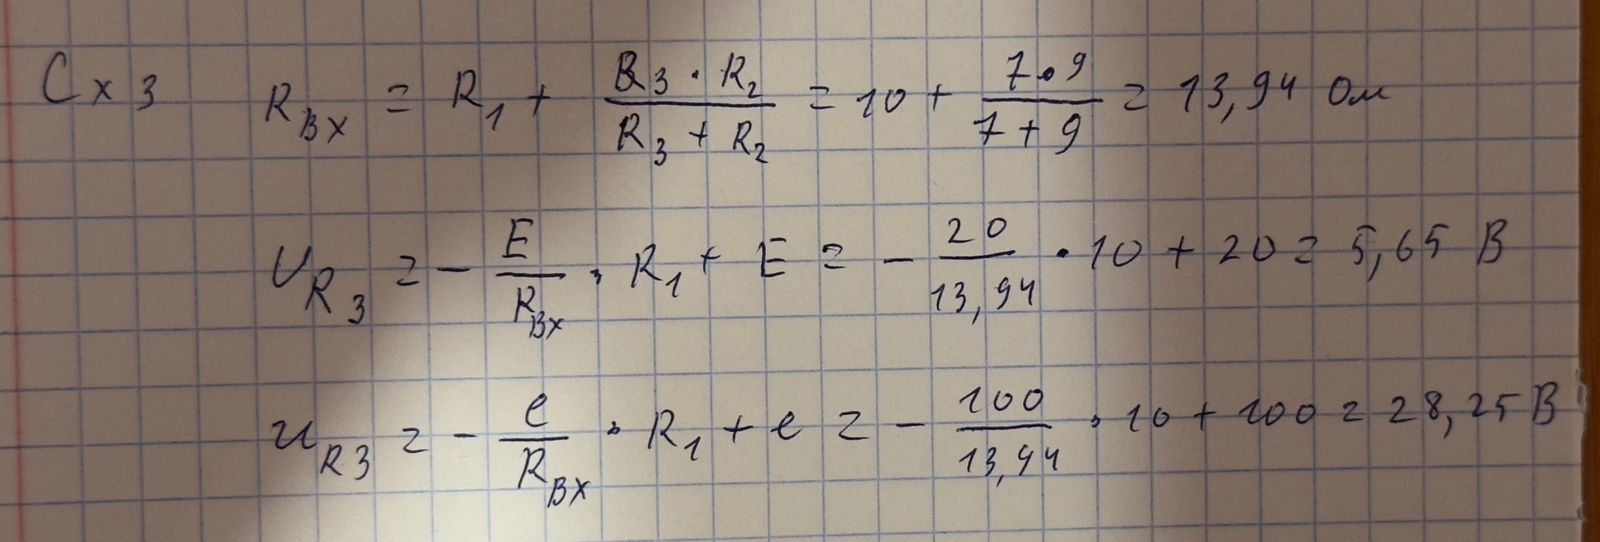 Сх 3 R_вх = R_1 + (R_3 · R_2)/(R_3 + R_2) = 10 + (7 · 9)/(7 + 9) = 13,94 Ом
U_R3 = - E/R_вх · R_1 + E = - 20/13,94 · 10 + 20 = 5,65 В
u_R3 = - e/R_вх · R_1 + e = - 100/13,94 · 10 + 100 = 28,25 В